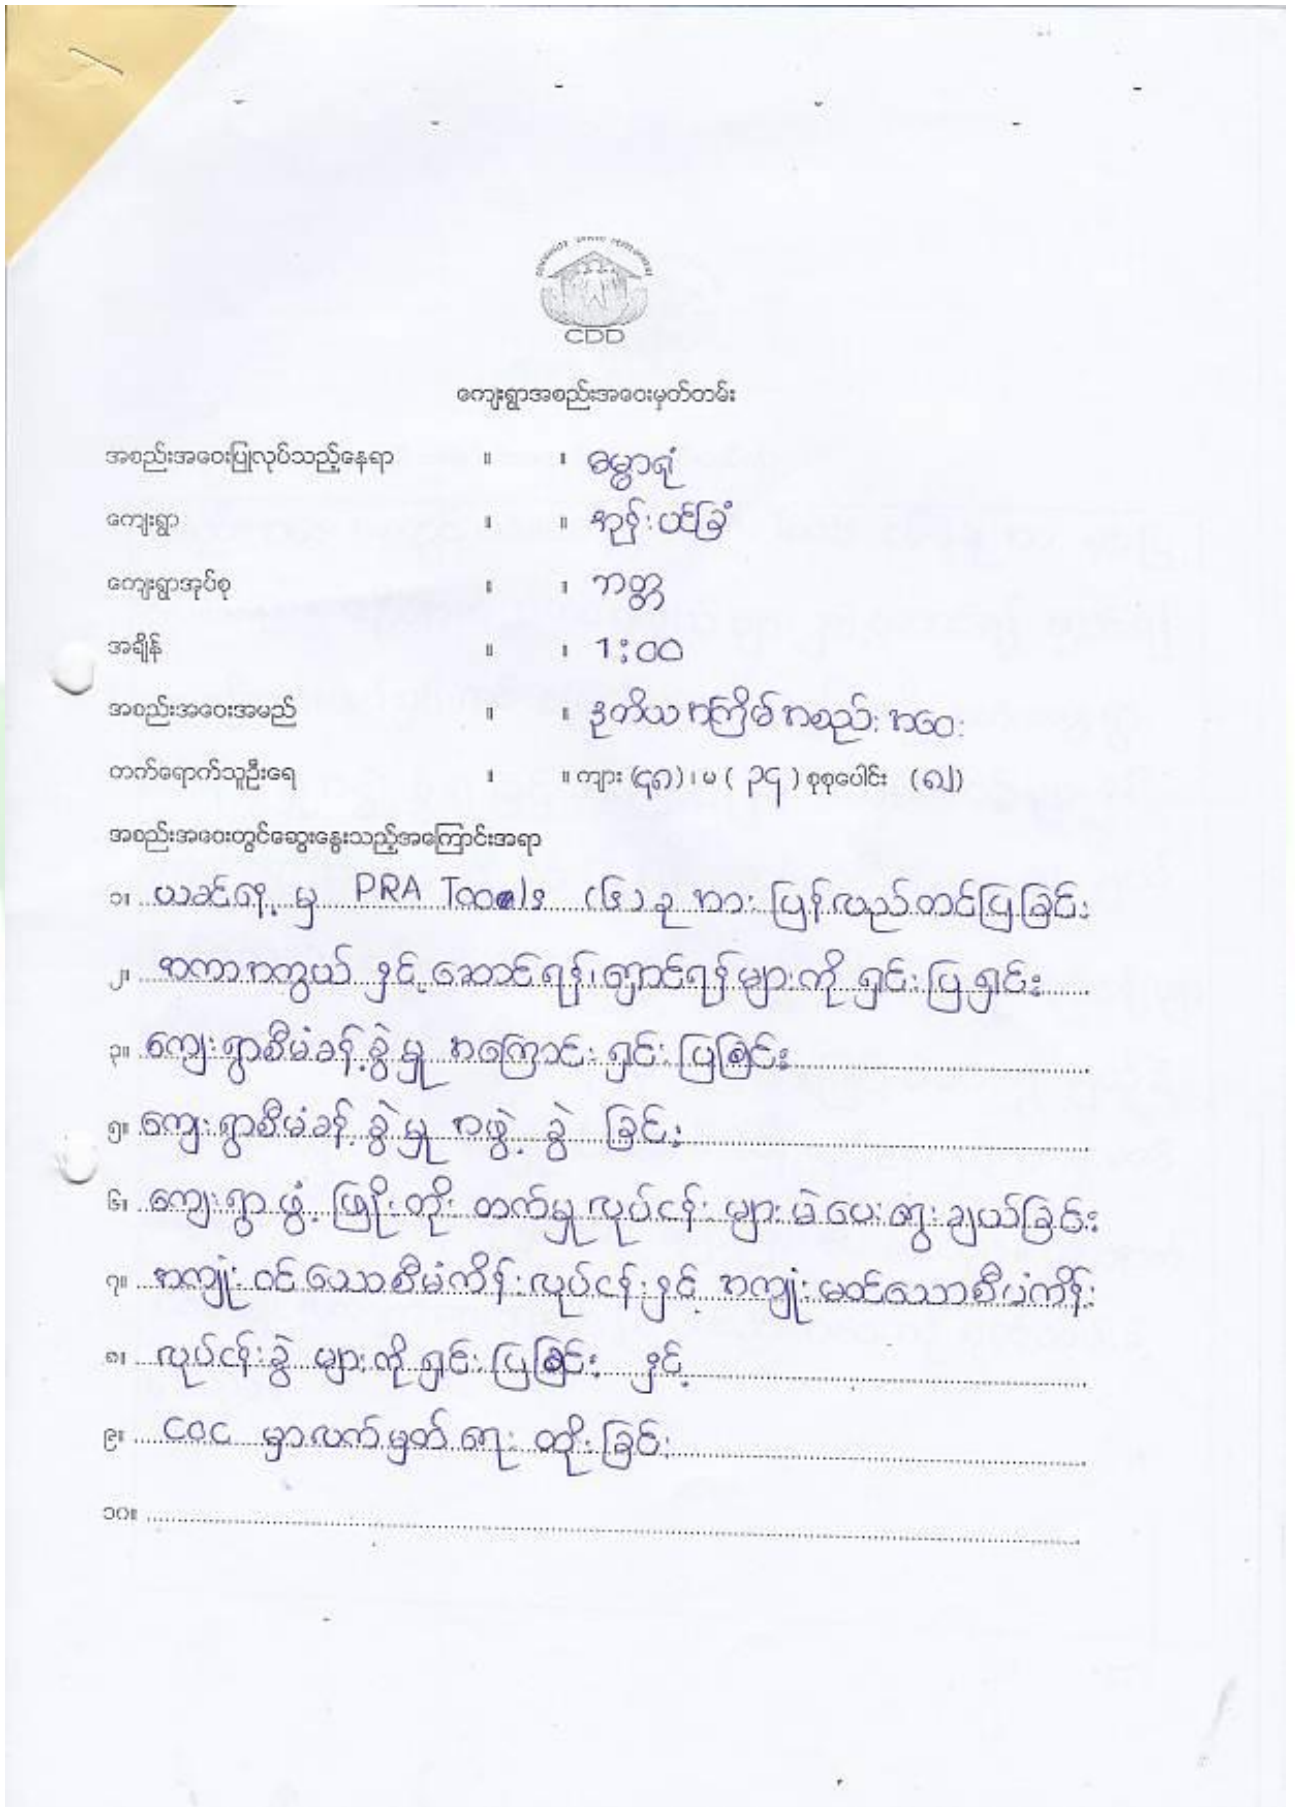 CDD
ကျေးရွာအစည်းအဝေးမှတ်တမ်း
အစည်းအဝေးပြုလုပ်သည့်နေရာ ။ ။ ဓမ္မာရုံ
ကျေးရွာ ။ ။ အုန်းပင်ခြံ
ကျေးရွာအုပ်စု ။ ။
အချိန် ။ ။ 1:00
အစည်းအဝေးအမည် ။ ။ ဒုတိယအကြိမ်အစည်းအဝေး
တက်ရောက်သူဦးရေ ။ ။ ကျား (၄၈) ၊ မ ( ၃၄ ) စုစုပေါင်း (၈၂)
အစည်းအဝေးတွင်ဆွေးနွေးသည့်အကြောင်းအရာ
၁။ ယခင်နေ့ မှ PRA Tools (၆) ခု အား ပြန်လည်တင်ပြခြင်း
၂။ အကာအကွယ် နှင့် ဆောင်ရန်၊ ရှောင်ရန်များကို ရှင်းပြရှင်း
၃။ ကျေးရွာစီမံခန့်ခွဲမှု အကြောင်း ရှင်းပြခြင်း
၅။ ကျေးရွာစီမံခန့်ခွဲမှု အဖွဲ့ ခွဲ ခြင်း
၆။ ကျေးရွာ ဖွံ့ဖြိုးတိုး တက်မှု လုပ်ငန်း များမဲပေးရွေးချယ်ခြင်း
၇။ အကျုံးဝင်သောစီမံကိန်းလုပ်ငန်းနှင့် အကျုံးမဝင်သောစီမံကိန်း
၈။ လုပ်ငန်းခွဲ များကိုရှင်းပြခြင်း နှင့်
၉။ COC မှာလက်မှတ်ရေး ထိုးခြင်း
၁၀။